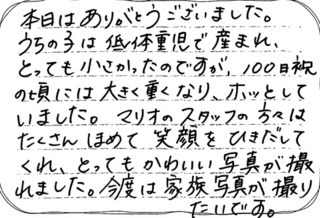 本日はありがとうございました。
うちの子は低体重児で産まれ、
とっても小さかったのですが、100日祝
の頃には大きく重くなり、ホッとして
いました。マリオのスタッフの方々は
たくさんほめて笑顔をひきだして
くれ、とってもかわいい写真が撮
れました。今度は家族写真が撮り
たいです。